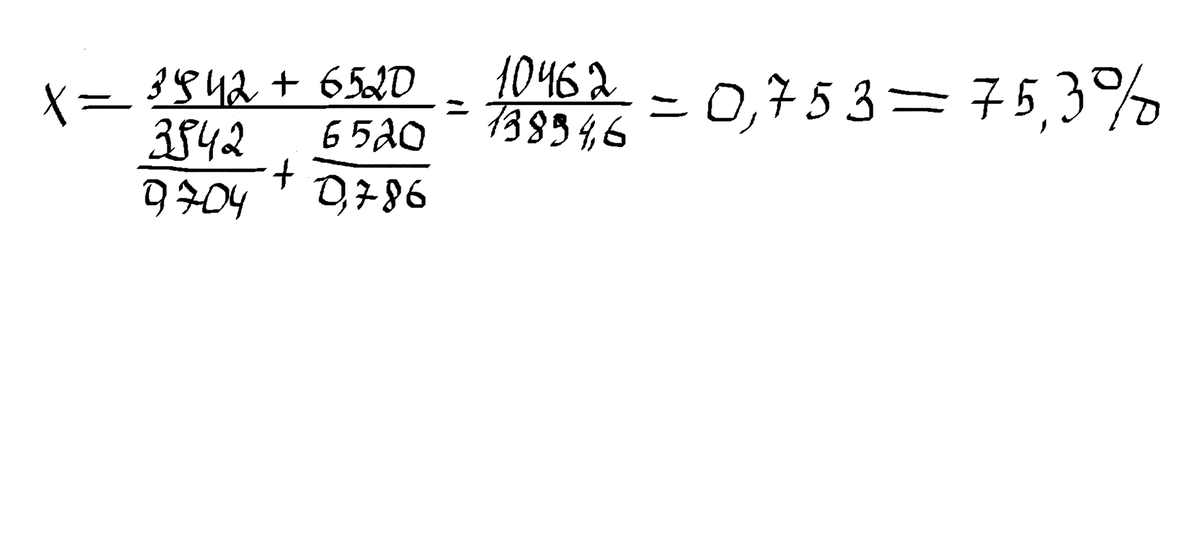 x = (3942 + 6520) / (3942/0,704 + 6520/0,786) = 10462/13894,6 = 0,753 = 75,3%